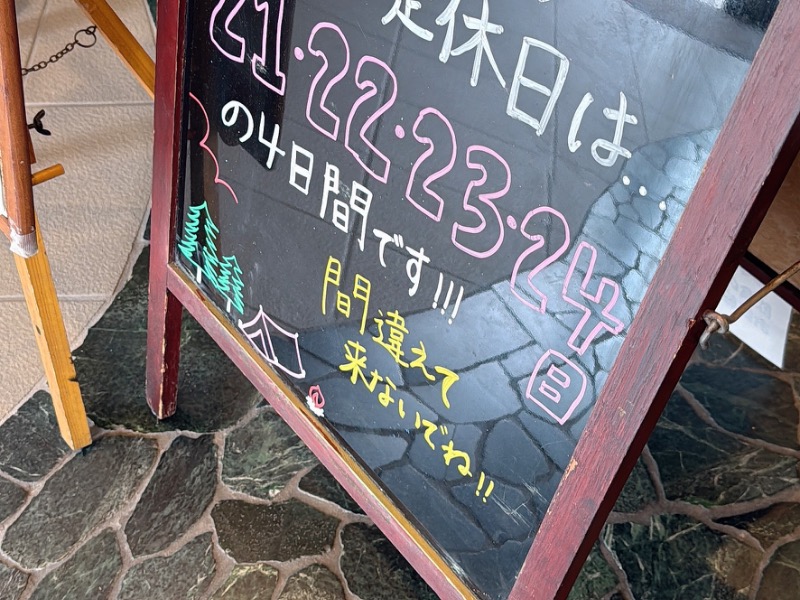 定休日は…
21・22・23・24日
の4日間です!!!
間違えて
来ないでね!!